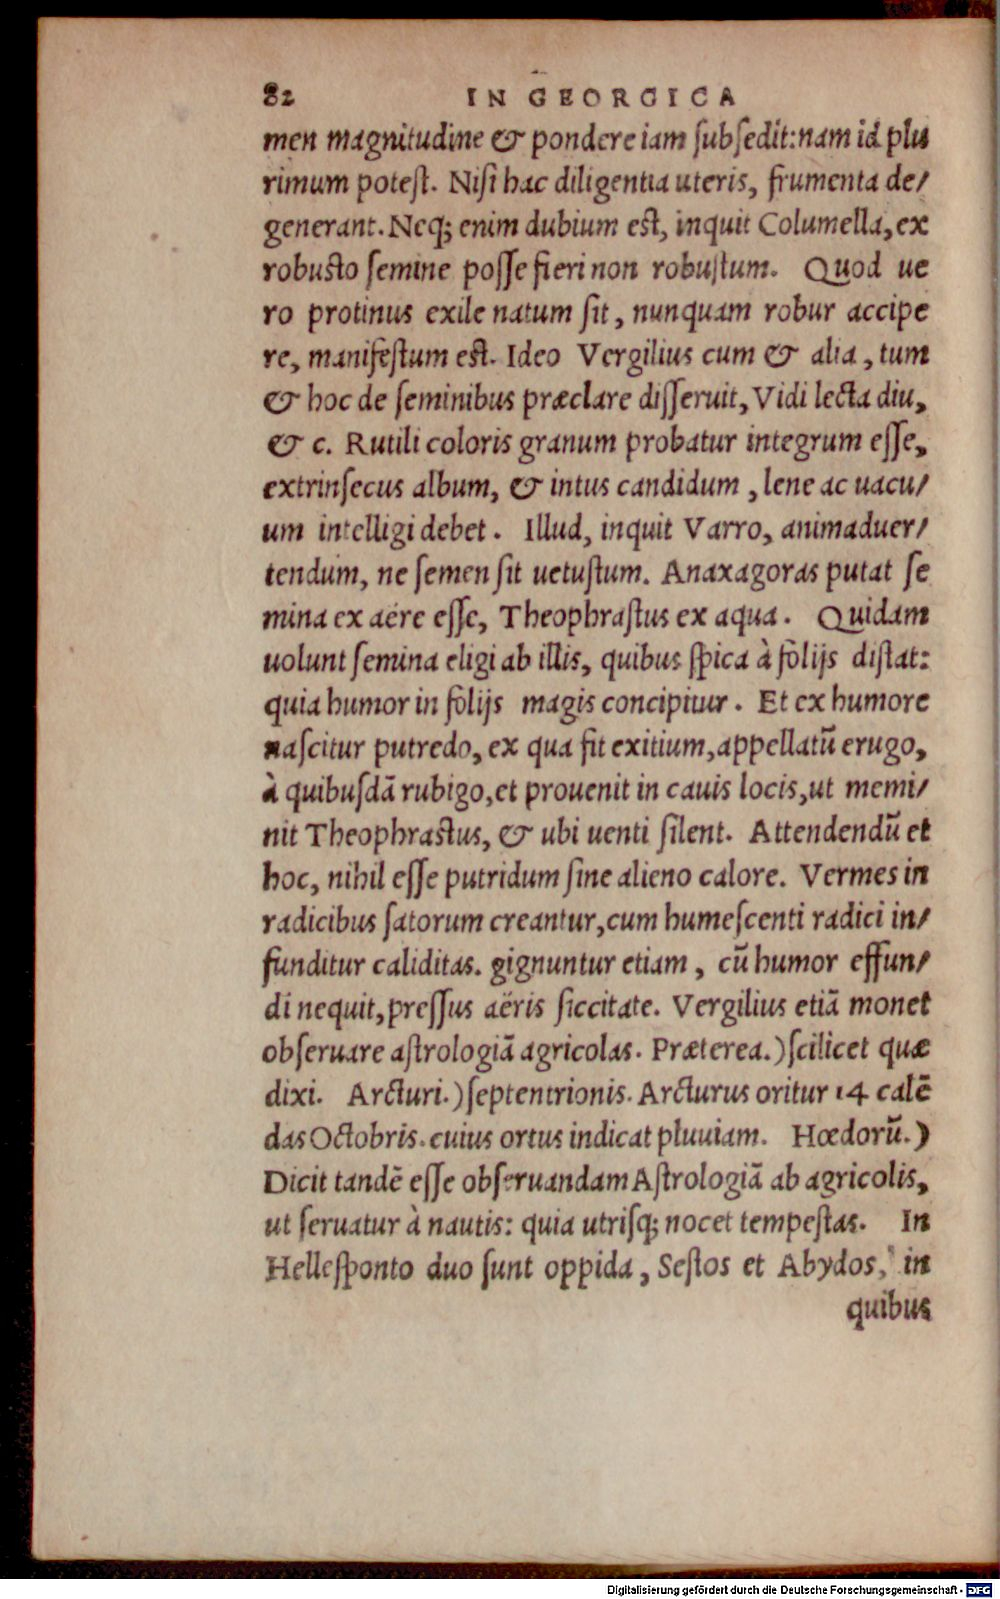 82 IN GEORGICA
men magnitudine & pondere iam ſubſedit: nam id plu
rimum poteſt. Niſi hac diligentia uteris, frumenta de/
generant. Neq; enim dubium eſt, inquit Columella, ex
robuſto ſemine poſſe fieri non robuſtum. Quod ue
ro protinus exile natum ſit, nunquam robur accipe
re, manifeſtum eſt. Ideo Vergilius cum & alia, tum
& hoc de ſeminibus præclare diſſeruit, Vidi lecta diu,
& c. Rutili coloris granum probatur integrum eſſe,
extrinſecus album, & intus candidum, lene ac uacu/
um intelligi debet. Illud, inquit Varro, animaduer/
tendum, ne ſemen ſit uetuſtum. Anaxagoras putat ſe
mina ex aëre eſſe, Theophraſtus ex aqua. Quidam
uolunt ſemina eligi ab illis, quibus ſpica à folijs diſtat:
quia humor in folijs magis concipitur. Et ex humore
naſcitur putredo, ex qua fit exitium, appellatũ erugo,
à quibuſdã rubigo, et prouenit in cauis locis, ut memi/
nit Theophraſtus, & ubi uenti ſilent. Attendendũ et
hoc, nihil eſſe putridum ſine alieno calore. Vermes in
radicibus ſatorum creantur, cum humeſcenti radici in/
funditur caliditas. gignuntur etiam, cũ humor effun/
di nequit, preſſus aëris ſiccitate. Vergilius etiã monet
obſeruare aſtrologiã agricolas. Præterea.) ſcilicet quæ
dixi. Arcturi.) ſeptentrionis. Arcturus oritur 14 calẽ
das Octobris. cuius ortus indicat pluuiam. Hœdorũ.)
Dicit tandẽ eſſe obſeruandam Aſtrologiã ab agricolis,
ut ſeruatur à nautis: quia utriſq; nocet tempeſtas. In
Helleſponto duo ſunt oppida, Seſtos et Abydos, in
quibus
Digitalisierung gefördert durch die Deutsche Forschungsgemeinschaft - DFG